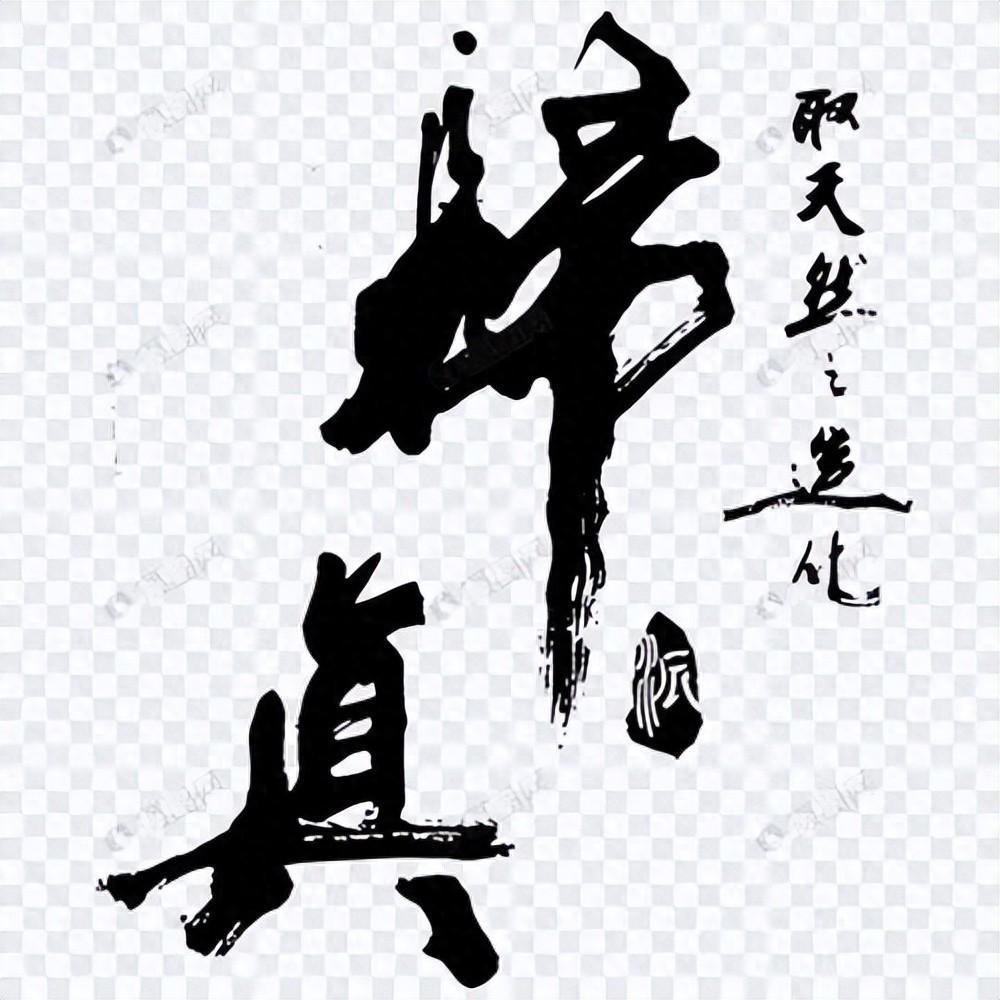 取天然之造化
歸真